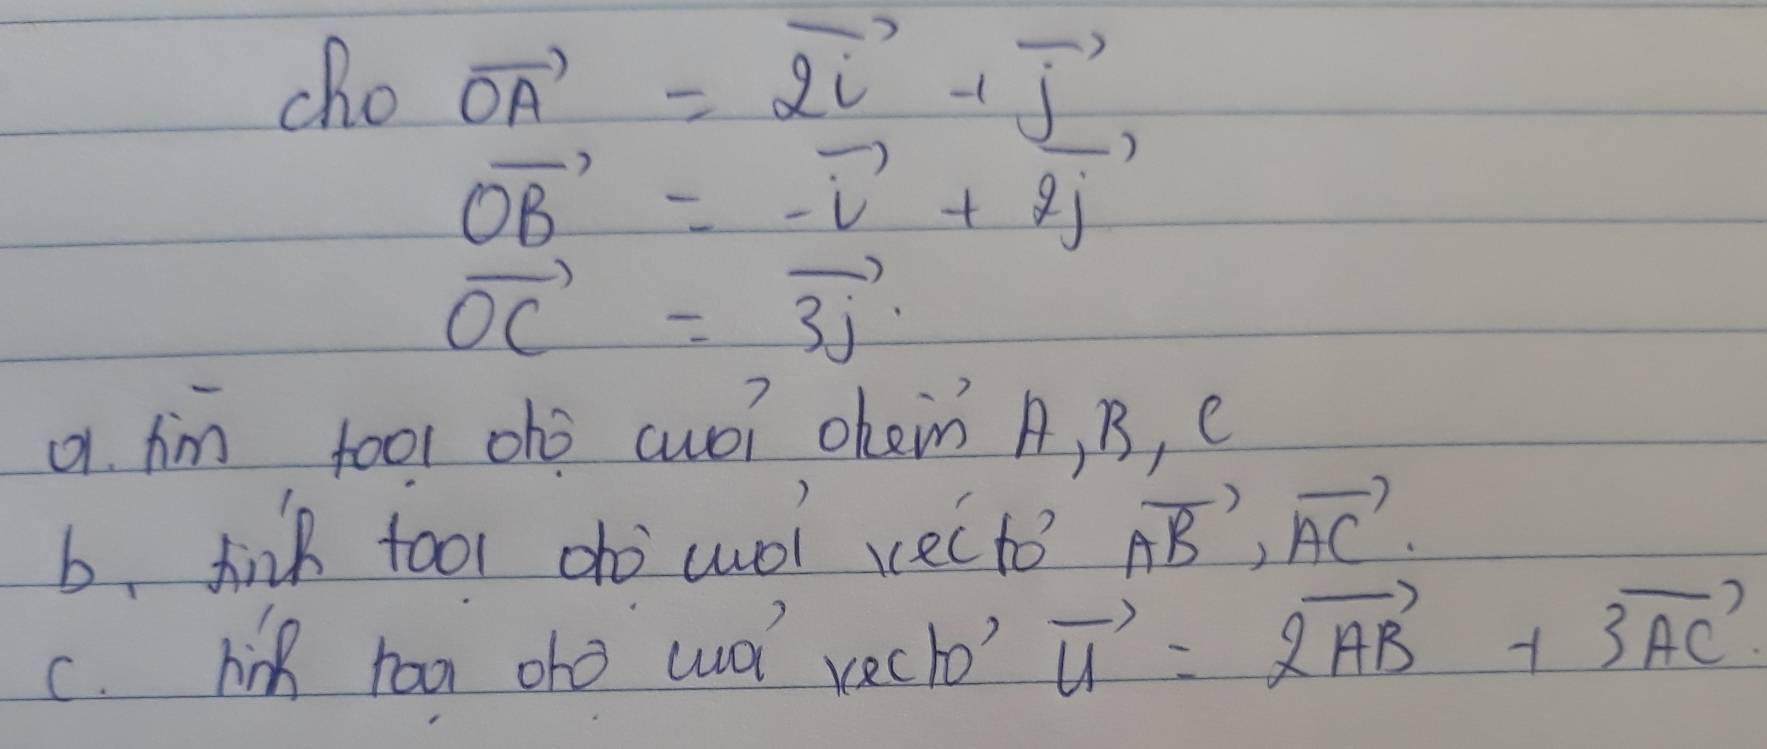 cho \overrightarrow{OA} = \overrightarrow{2i} + \overrightarrow{j}
\overrightarrow{OB} = -\overrightarrow{i} + \overrightarrow{2j}
\overrightarrow{OC} = \overrightarrow{3j}.
a. tìm toạ độ của điểm A, B, C
b. tính toạ độ của véctơ \overrightarrow{AB}, \overrightarrow{AC}.
c. tính toạ độ của vectơ \overrightarrow{u} = \overrightarrow{2AB} + \overrightarrow{3AC}.